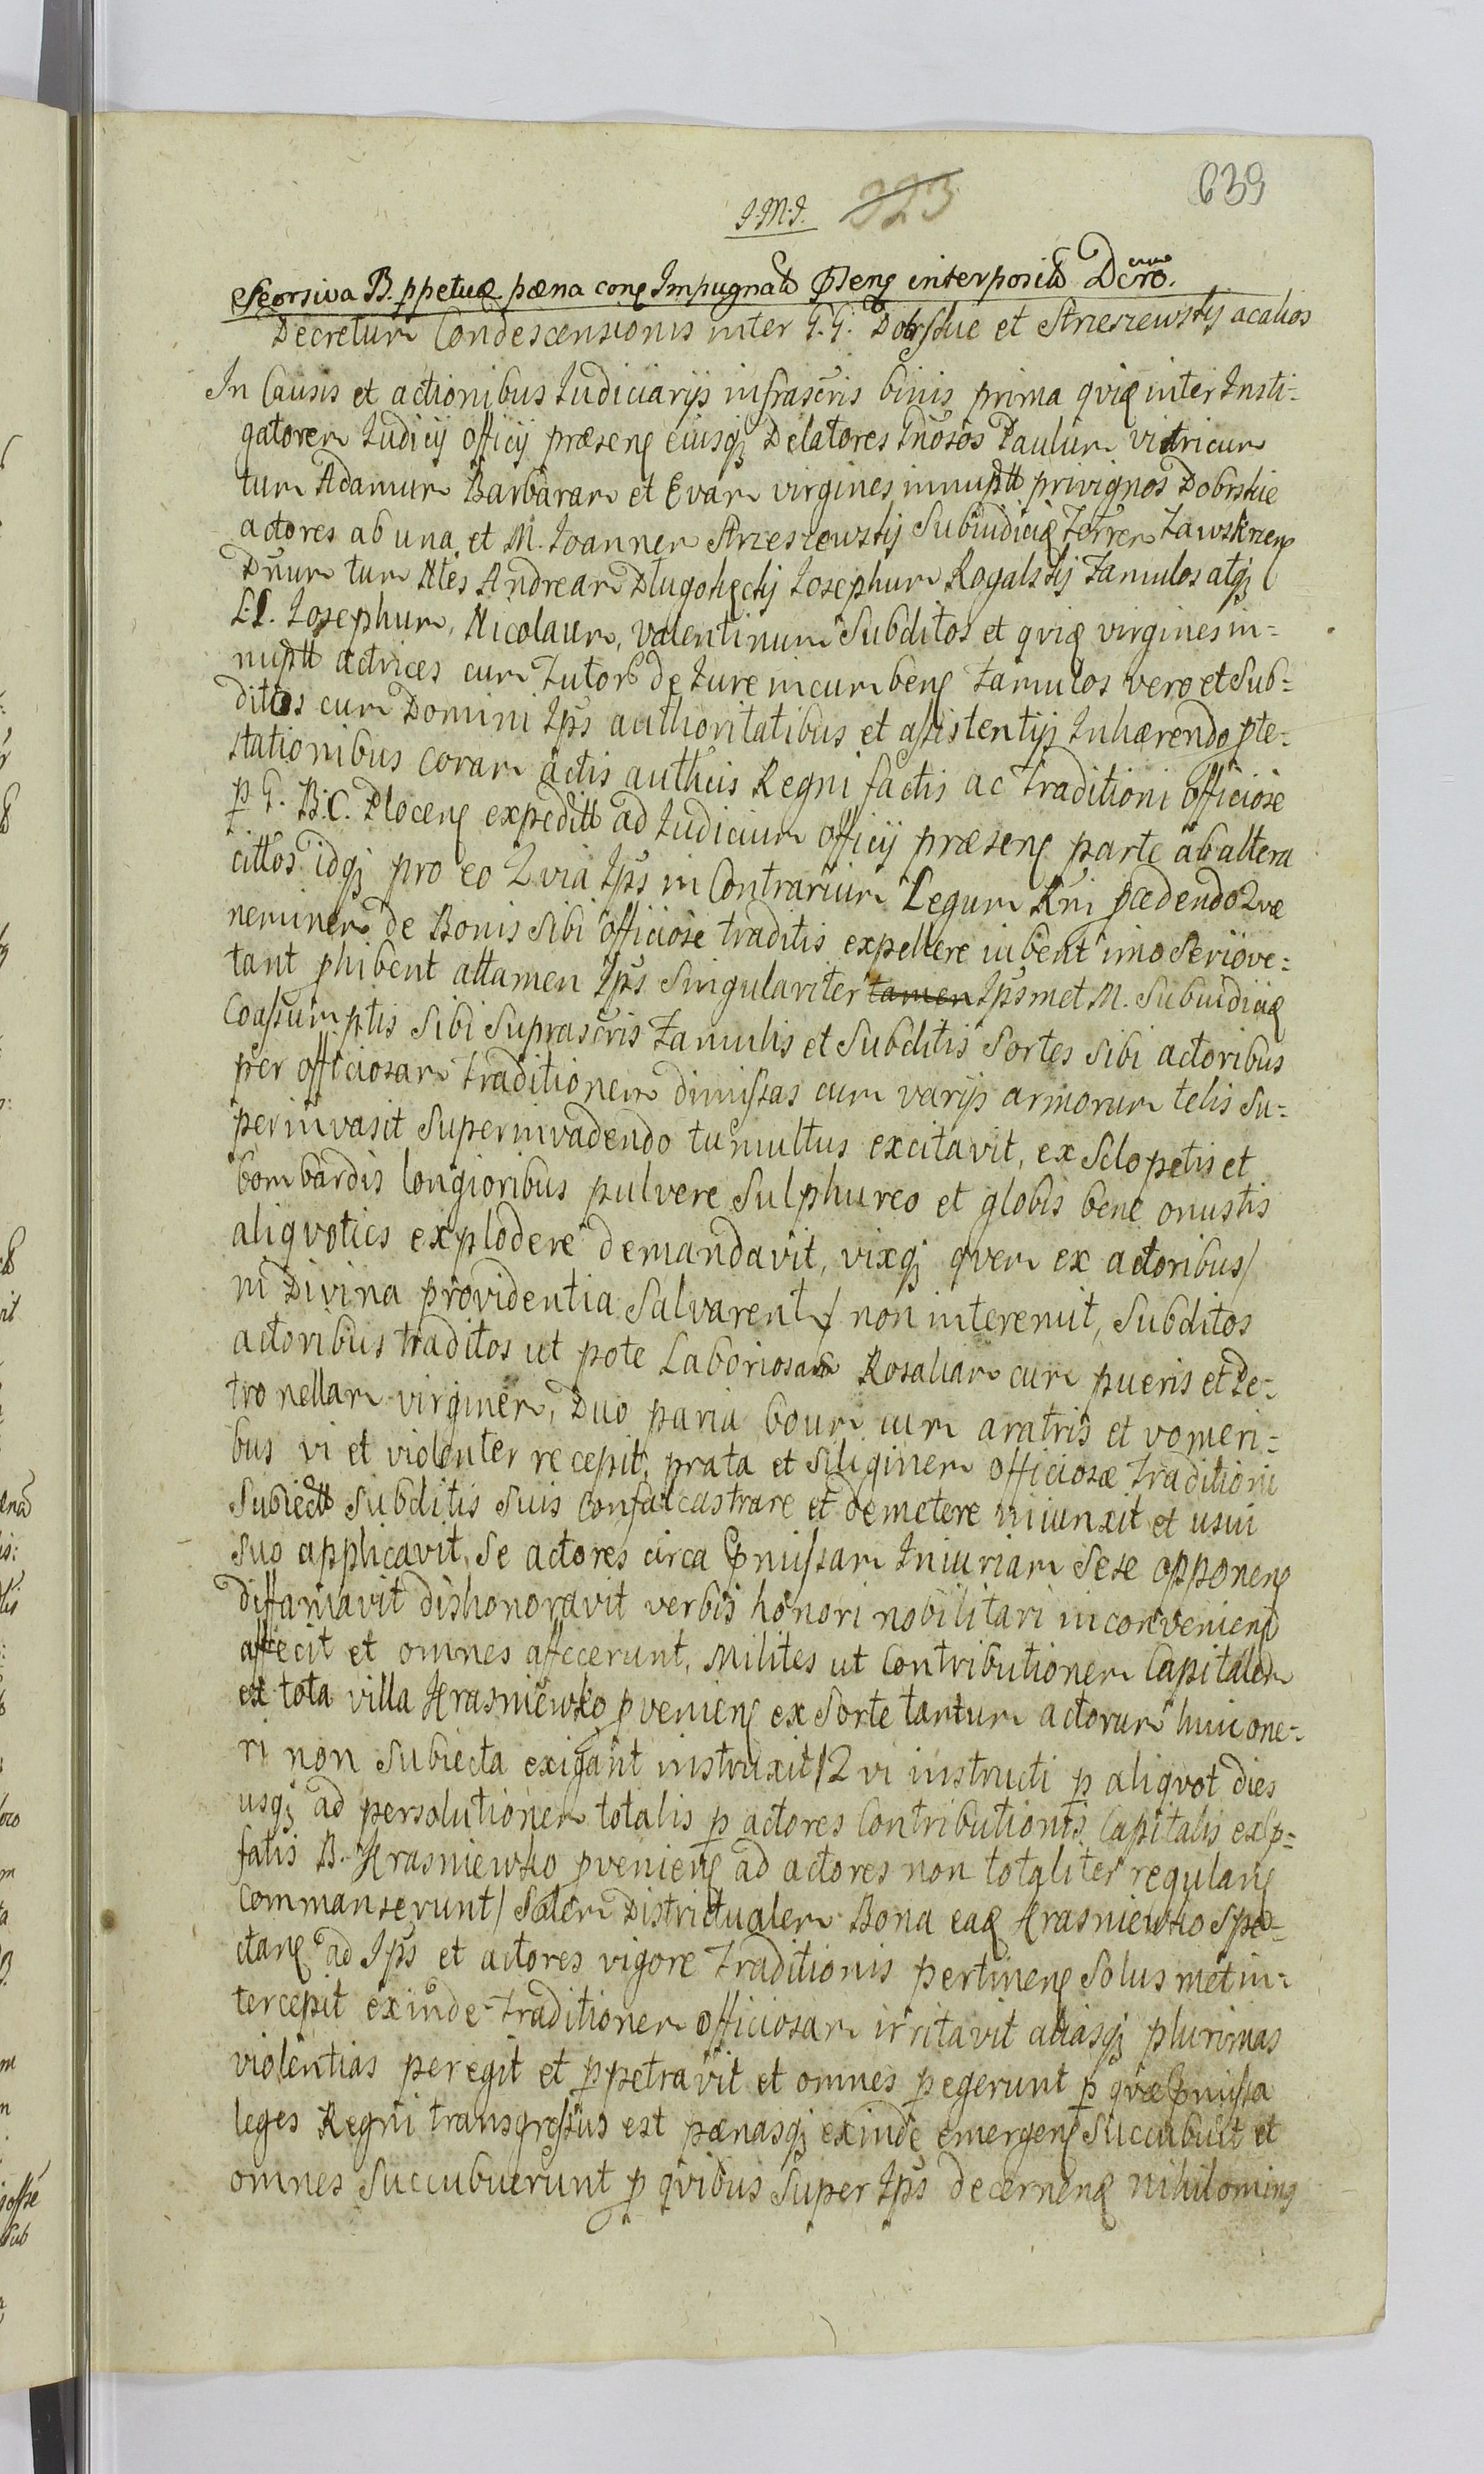 639
J.M.J. 323
Seorsiva B. ppetuæ pæna conę Impugnató Pñsenę interpositó Dcró.
Decretum Condescensionis inter G.G. Dobrskie et Strzeszewskij ac alios
In Causis et actionibus Iudiciarijs infrascris binis prima qvię inter Insti-
gatorem Iudicij officij præsenę eiusqz Delatores Gnosos Paulum vitricum
tum Adamum Barbaram et Evam virgines innuptt privignos Dobrskie
actores ab una et M. Joannem Strzeszewskij Subiudicię Terren Zawskrzenę
Dnum tum Ntes Andream Długołęckij Josephum Rogalskij Famulos atqz
LL. Josephum, Nicolaum, Valentinum Subditos et qvię virgines in-
nuptt actrices cum Tutorb de Jure incumbenę Famulos vero et Sub-
dittos cum Domini Ips authoritatibus et assistentijs Inhærendo pte-
stationibus coram actis autheis Regni factis ac Traditioni officiose
p G. B.C. Plocenę expeditt ad Iudicium officij præsenę parte ab altera
cittos idqz pro eo Qvia Ips in Contrarium Legum Rni pcedendo Qvæ
neminem de Bonis sibi officiose traditis expellere iubent imo serio ve-
tant phibent attamen Ips singulariter tamen Ipsmet M. Subiudicię
Coassumptis sibi suprascris Famulis et Subditis sortes sibi actoribus
per officiosam Traditionem dimissas cum varijs armorum telis su-
perinvasit superinvadendo tumultus excitavit, ex sclopetis et
bombardis longioribus pulvere sulphureo et globis bene onustis
aliqvoties explodere demandavit, vixqz qvem ex actoribus/
ni Divina providentia salvarent/ non interemit, Subditos
actoribus traditos ut pote Laboriosam Rosaliam cum pueris et Pe-
tronellam virginem, Duo paria boum cum aratris et vomeri-
bus vi et violenter recepit, prata et siliginem officiosæ Traditioni
Subiectt subditis suis confalcastrare et demetere iniunxit et usui
suo applicavit, se actores circa Pmissam Iniuriam sese opponenę
diffamavit dishonoravit verbis honori nobilitari inconvenienę
affecit et omnes affecerunt, Milites ut Contributionem Capitalem
ex tota villa Krasniewko pvenienę ex sorte tantum actorum huic one-
ri non subiecta exigant instruxit/ Qvi instructi p aliqvot dies
usqz ad persolutionem totalis p actores Contributionis Capitalis ex p-
fatis B. Krasniewko pvenienę ad actores non totaliter regulanę
commanserunt/ salem Districtualem Bona eaę Krasniewko spe-
ctanę ad Ips et actores vigore Traditionis pertinenę solusmet in-
tercepit exinde Traditionem officiosam irritavit aliasqz plurimas
violentias peregit et ppetravit et omnes pegerunt p qvæ Pmissa
leges Regni transgressus est pænasqz exinde emergenę succubuit et
omnes succubuerunt p qvibus super Ips decernenę nihilominę